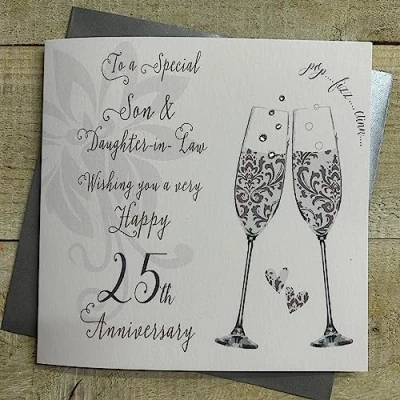 To a Special
Son &
Daughter-in-Law
Wishing you a very
Happy
25th
Anniversary
pop....fizz....clink....